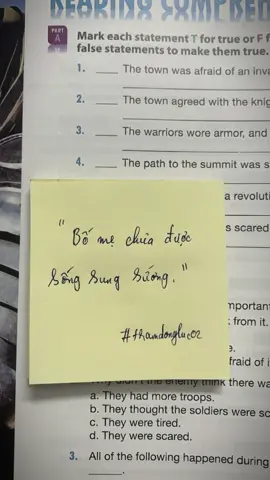 READING COMPREH
PART A
Mark each statement T for true or F f
false statements to make them true.
1. ____ The town was afraid of an inva
2. ____ The town agreed with the knig
3. ____ The warriors wore armor, and
4. ____ The path to the summit was s
a revoluti
s scared
"Bố mẹ chưa được
sống sung sướng."
#thamdongluc02
mportan
from it.
e.
fraid of i
Why didn't the enemy think there wa
a. They had more troops.
b. They thought the soldiers were sc
c. They were tired.
d. They were scared.
3. All of the following happened during
____.